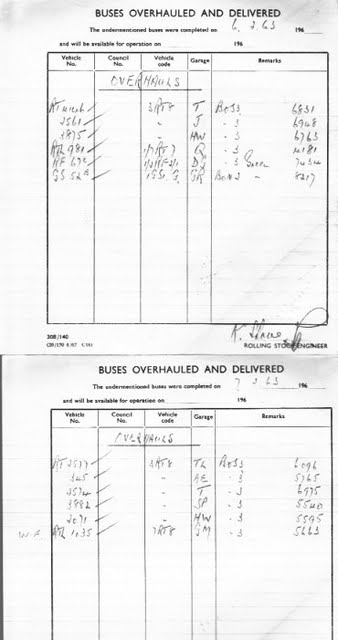 BUSES OVERHAULED AND DELIVERED
The undermentioned buses were completed on 6. 2. 63 196
and will be available for operation on 196
Vehicle No. Council No. Vehicle code Garage Remarks
OVERHAULS
RT 3RT8 T BO53 6831
2561 - J - 3 6948
1875 - HW - 3 6763
RTL 981 1/7RT7 Q - 3 4181
RF 672 DG - 3 Green 7434
GS 52 GR 8217
308/140
ROLLING STOCK ENGINEER
BUSES OVERHAULED AND DELIVERED
The undermentioned buses were completed on 7. 2. 63 196
and will be available for operation on 196
Vehicle No. Council No. Vehicle code Garage Remarks
OVERHAULS
RT 3577 3RT8 TL BO53 6096
345 - AE - 3 5765
3574 - T - 3 6975
3882 - SP - 3 5540
2071 - HW - 3 5595
RTL 1035 7RT8 GM - 3 5663